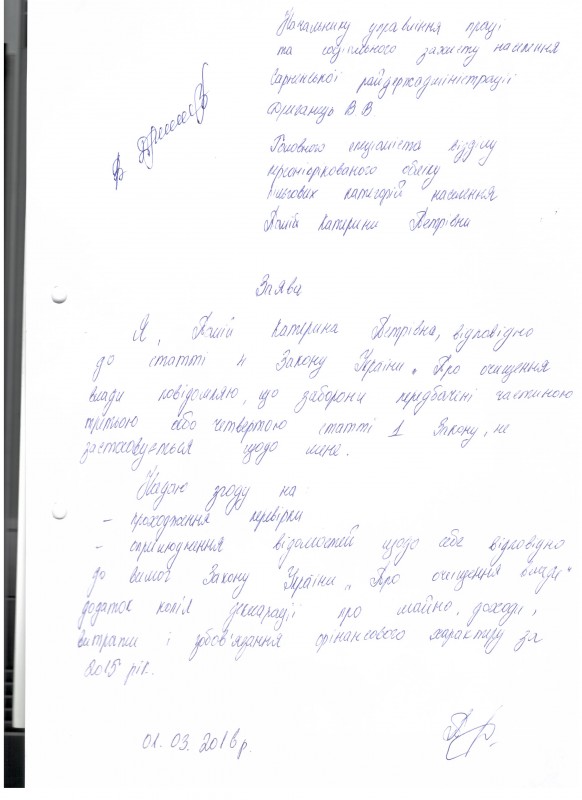 Начальнику управління праці
та соціального захисту населення
Сарненської райдержадміністрації
Дриганець В В
Головного спеціаліста відділу
персоніфікованого обліку
пільгових категорій населення
Катерини Петрівни
Заява
Я, Катерина Петрівна, відповідно
до статті 4 Закону України „Про очищення
влади повідомляю, що заборони передбачені частиною
третьою або четвертою статті 1 Закону, не
застосовується щодо мене.
Надаю згоду на
- проходження перевірки
- оприлюднення відомостей щодо себе відповідно
до вимог Закону України „Про очищення влади"
додаток копія декларації про майно, доходи,
витрати і зобов'язання фінансового характеру за
2015 рік.
01.03.2016р.